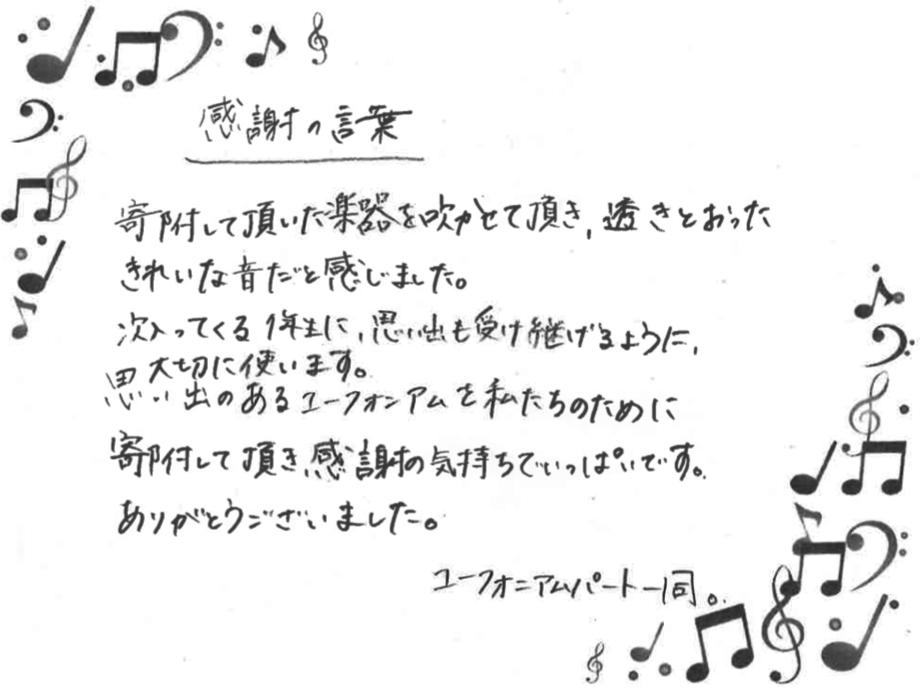 感謝の言葉
寄附して頂いた楽器を吹かせて頂き、透きとおった
きれいな音だと感じました。
次入ってくる1年生に、思い出も受け継げるように、
大切に使います。
思い出のあるユーフォンアムを私たちのために
寄附して頂き、感謝の気持ちでいっぱいです。
ありがとうございました。
ユーフォニアムパート一同。